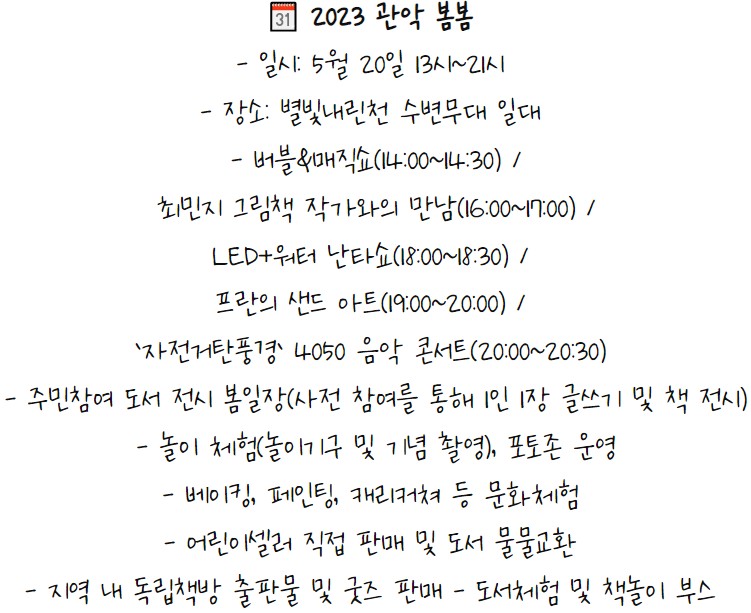 31 2023 관악 봄봄
- 일시: 5월 20일 13시~21시
- 장소: 별빛내린천 수변무대 일대
- 버블&매직쇼(14:00~14:30) /
최민지 그림책 작가와의 만남(16:00~17:00) /
LED+워터 난타쇼(18:00~18:30) /
프란의 샌드 아트(19:00~20:00) /
`자전거탄풍경` 4050 음악 콘서트(20:00~20:30)
- 주민참여 도서 전시 봄일장(사전 참여를 통해 1인 1장 글쓰기 및 책 전시)
- 놀이 체험(놀이기구 및 기념 촬영), 포토존 운영
- 베이킹, 페인팅, 캐리커쳐 등 문화체험
- 어린이셀러 직접 판매 및 도서 물물교환
- 지역 내 독립책방 출판물 및 굿즈 판매 - 도서체험 및 책놀이 부스